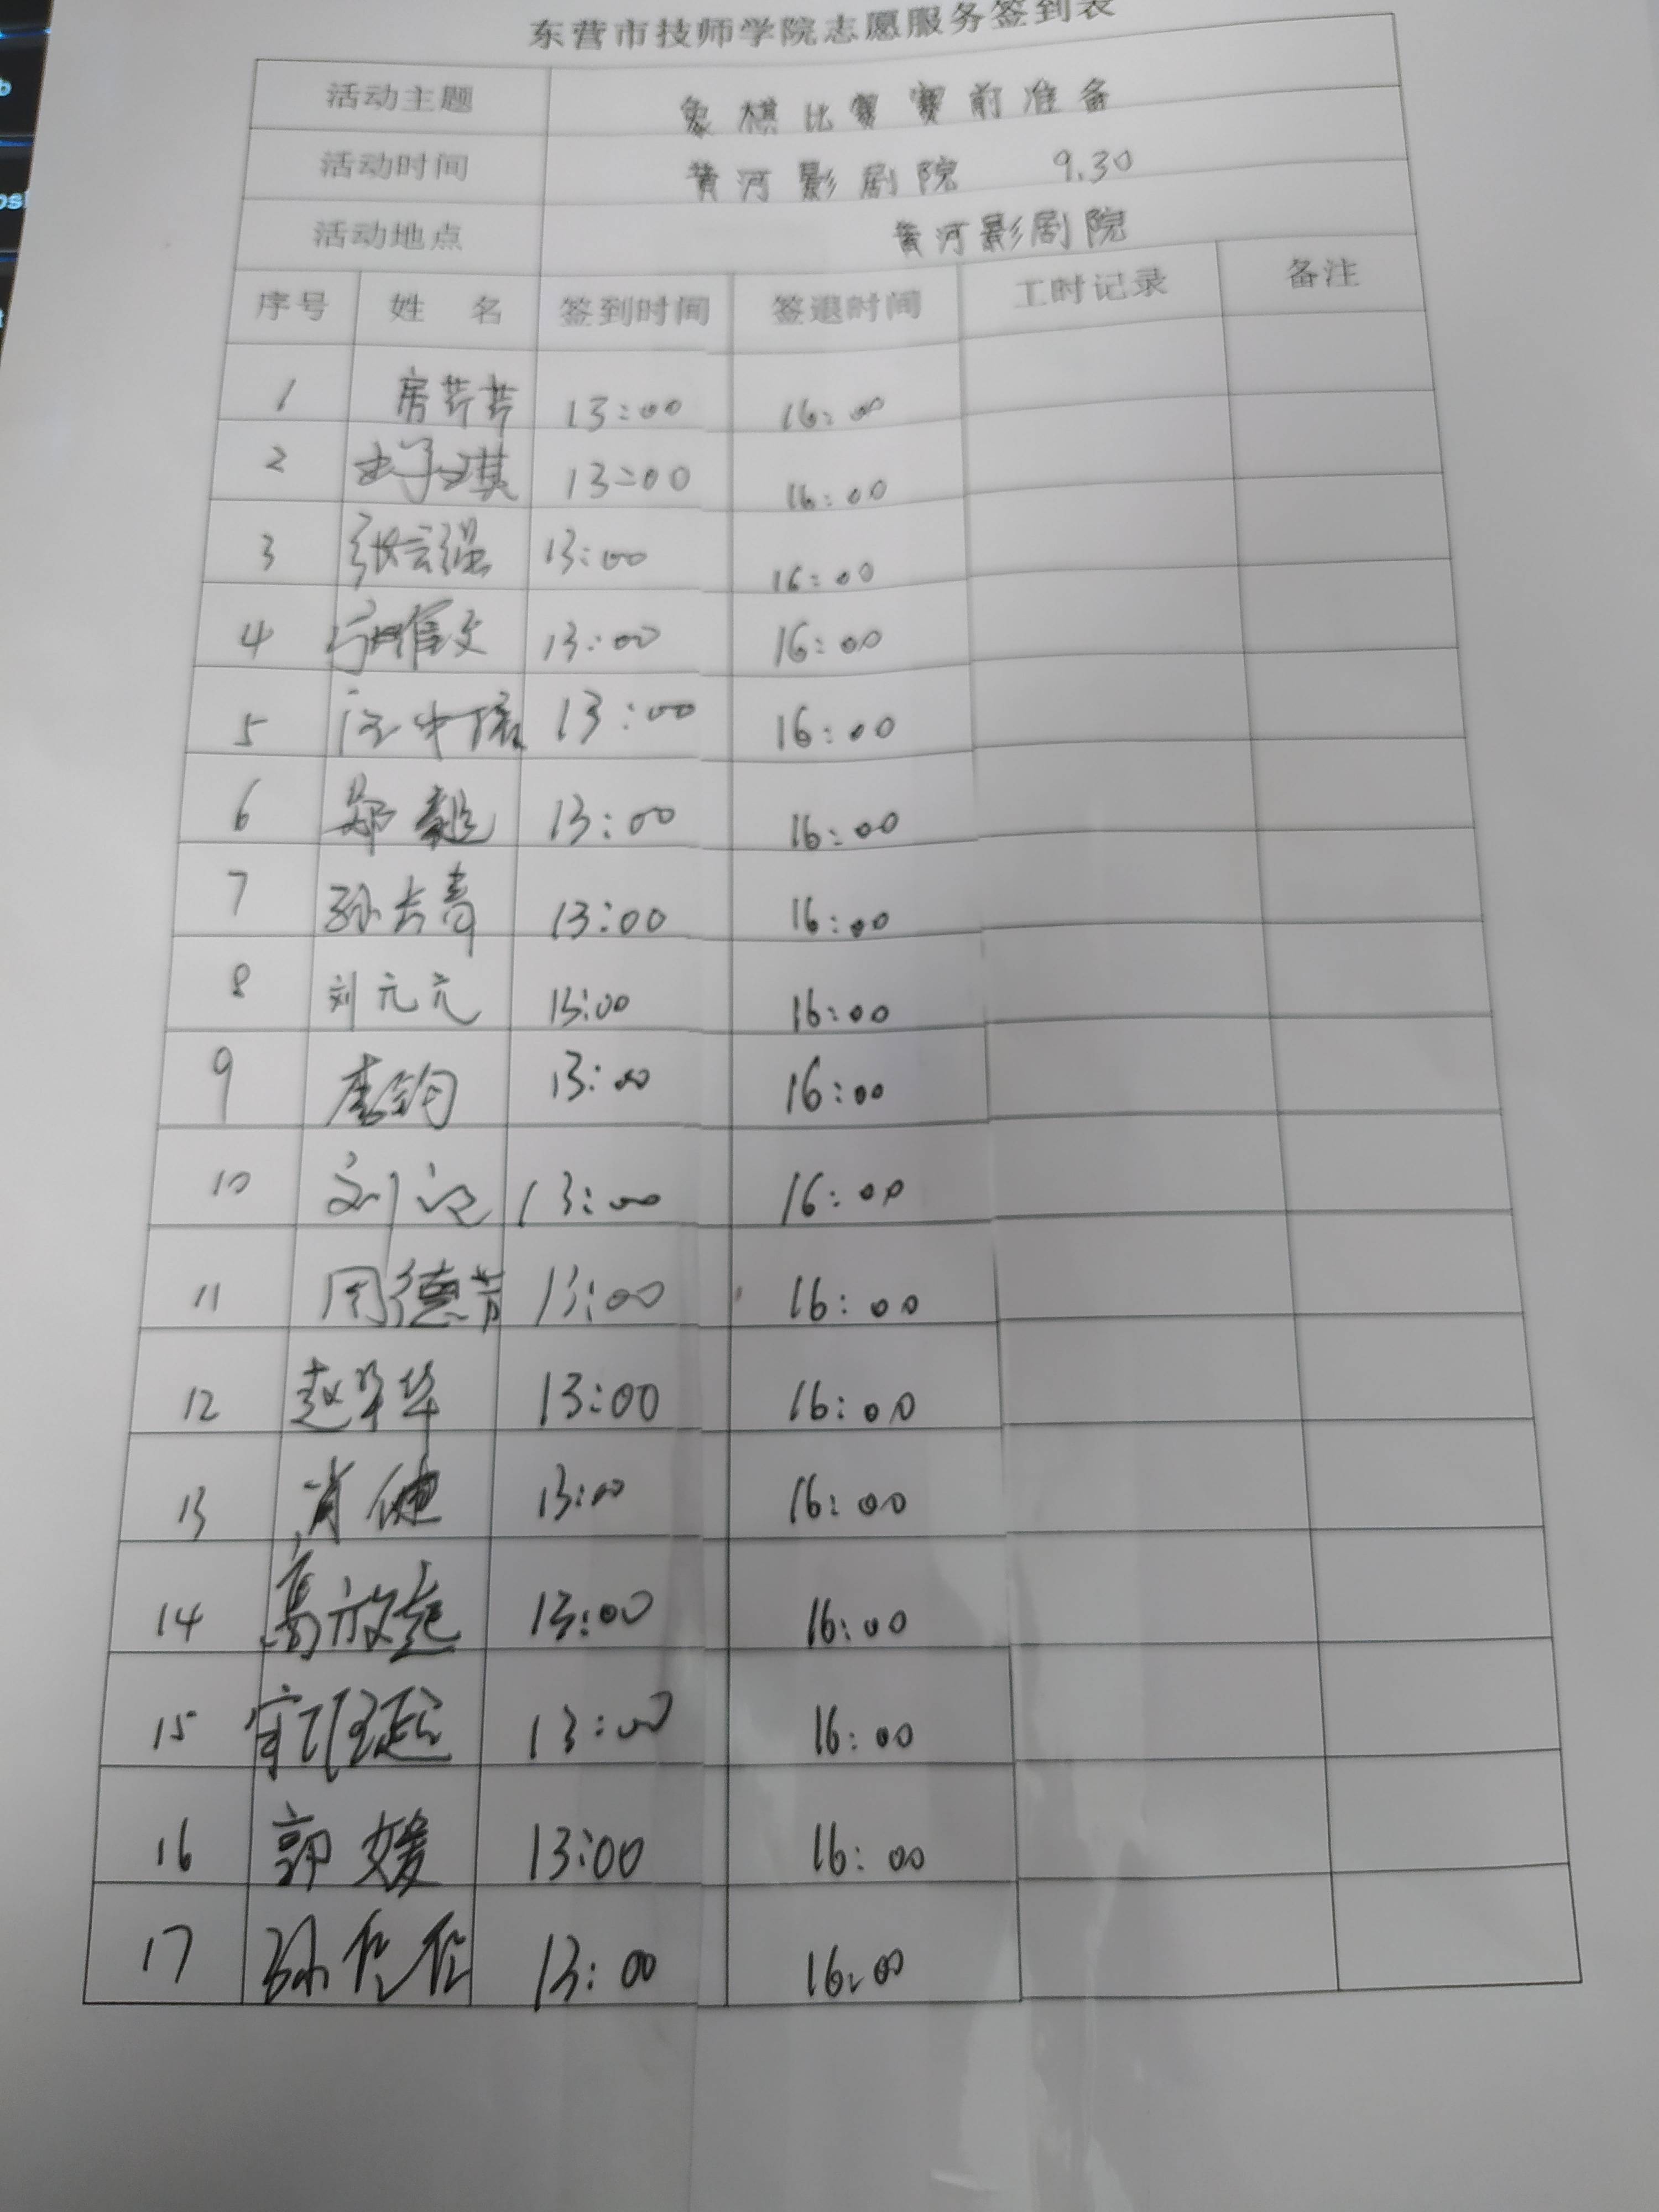 东营市技师学院志愿服务签到表
活动主题 象棋比赛赛前准备
活动时间 黄河影剧院 9.30
活动地点 黄河影剧院
序号 姓 名 签到时间 签退时间 工时记录 备注
1 房芹芹 13:00 16:00
2 子琪 13:00 16:00
3 张云强 13:00 16:00
4 13:00 16:00
5 13:00 16:00
6 郑毅 13:00 16:00
7 孙长青 13:00 16:00
8 刘元元 13:00 16:00
9 李钧 13:00 16:00
10 刘 13:00 16:00
11 周德芳 13:00 16:00
12 赵华 13:00 16:00
13 肖健 13:00 16:00
14 高放 13:00 16:00
15 13:00 16:00
16 郭媛 13:00 16:00
17 孙 13:00 16:00